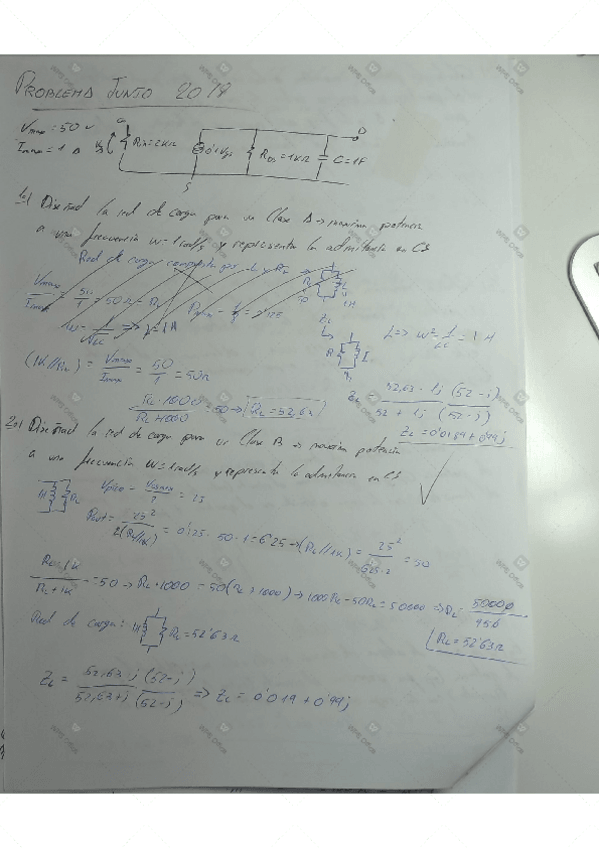 PROBLEMA JUNIO 2018
Vmax = 50 v
Imax = 1 A
G
Rin=2KΩ
0'1Vgs
RDS=1KΩ
C=1F
D
S
1.) Diseñad la red de carga para un Clase A → maxima potencia
a una frecuencia W=1rad/s y representa la admitancia en CS
Red de carga compuesta por L y RL
(1K//RL) = Vmax/Imax = 50/1 = 50Ω
RL·1000/RL+1000 = 50 → RL=52,63
L => W² 1/LC = 1 H
ZL = 52,63·1j (52-j) / 52+1j (52-j)
ZL = 0'0189+0'99j
2.) Diseñad la red de carga para un Clase B → maxima potencia
a una frecuencia W=1rad/s y representa la admitancia en CS
1H RL
= 25
Pout = 25²/2(RL//1K) = 0'25·50·1=6'25 → (RL//1K) = 25²/ = 50
RL·1K/RL+1K = 50 → RL·1000 = 50(RL+1000) → 1000RL-50RL = 50000 => RL = 50000/950
RL=52'63Ω
Red de carga: 1H RL=52'63Ω
ZL = 52,63·j (52-j) / 52,63+j (52-j) => ZL = 0'019 + 0'99j